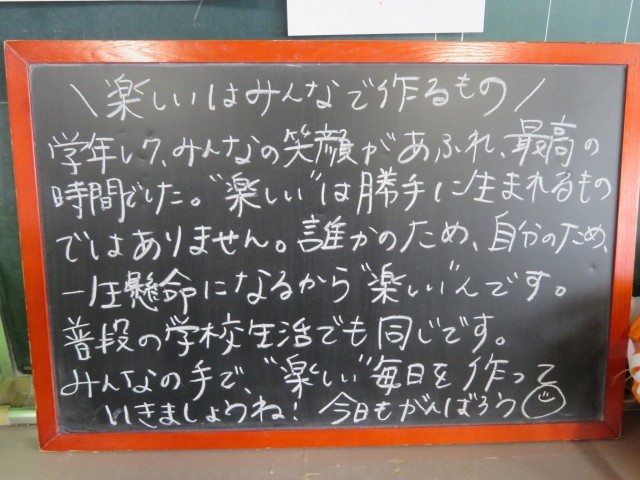 \楽しいはみんなで作るもの/
学年レク、みんなの笑顔があふれ、最高の
時間でした。"楽しい"は勝手に生まれるもの
ではありません。誰かのため、自分のため、
一生懸命になるから"楽しい"んです。
普段の学校生活でも同じです。
みんなの手で、"楽しい"毎日を作って
いきましょうね! 今日もがんばろう